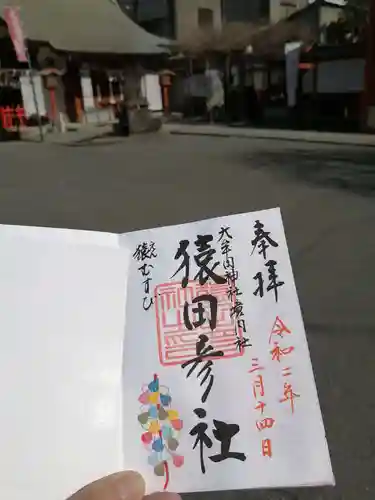 奉拝
令和二年
三月十四日
大牟田神社境内社
猿田彦社
猿むすび